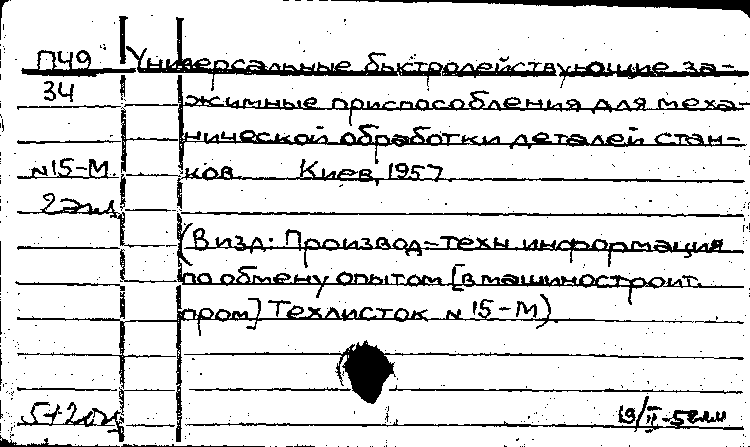 П49 Универсальные быстродействующие за-
34 жимные приспособления для меха-
нической обработки деталей стан-
N15-М ков. Киев, 1957.
2экз
(В изд: Производ-техн. информация
по обмену опытом [в машиностроит.
пром] Техлисток N 15-М).
19/II-58